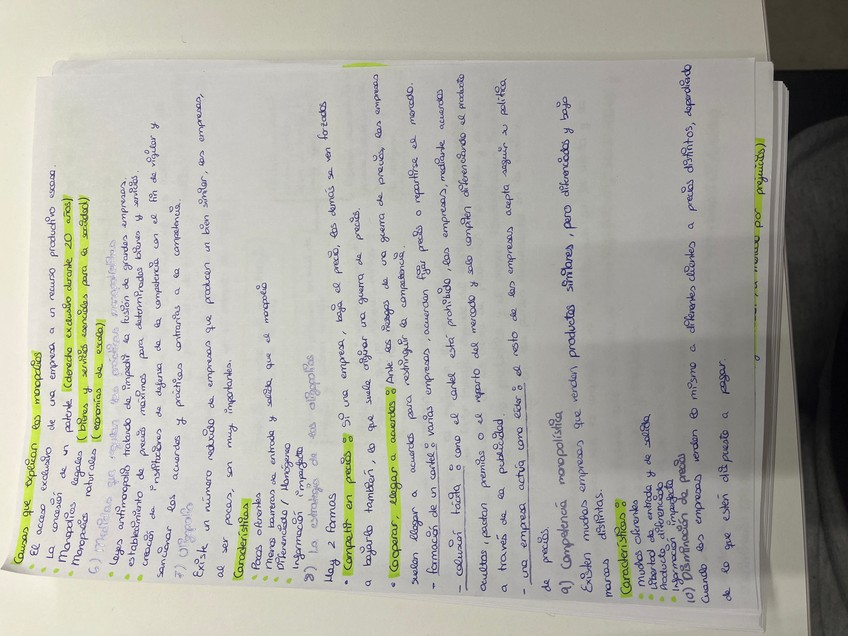 Causas que explican los monopolios
• El acceso exclusivo de una empresa a un recurso productivo escaso.
• La concesión de un patente (derecho exclusivo durante 20 años)
• Monopolios legales (bienes y servicios esenciales para la sociedad)
• Monopolios naturales (economías de escala)
6) Medidas para regular las prácticas monopolísticas
• Leyes antimonopolio tratando de impedir la fusión de grandes empresas.
• establecimiento de precios máximos para determinados bienes y servicios.
• creación de instituciones de defensa de la competencia con el fin de vigilar y
sancionar los acuerdos y prácticas contrarias a la competencia.
7) Oligopolio
Existe un número reducido de empresas que producen un bien similar, las empresas,
al ser pocas, son muy importantes.
Características
• Pocos oferentes
• Menos barreras de entrada y salida que el monopolio
• Diferenciado / Homogéneo
• Información imperfecta
8) La estrategia de los oligopolios
Hay 2 formas
• Competir en precios: Si una empresa, baja el precio, las demás se ven forzadas
a bajarlo también, lo que suele originar una guerra de precios.
• Cooperar, llegar a acuerdos: Ante los riesgos de una guerra de precios, las empresas
suelen llegar a acuerdos para restringir la competencia.
- formación de un cartel: varias empresas, acuerdan fijar precios o repartirse el mercado.
- colusión tácita: como el cartel está prohibido, las empresas, mediante acuerdos
ocultos, pactan precios o el reparto del mercado y solo compiten diferenciando el producto
a través de la publicidad.
- una empresa actúa como líder: el resto de las empresas acepta seguir su política
de precios.
9) Competencia monopolística
Existen muchas empresas que venden productos similares, pero diferenciados y bajo
marcas distintas.
Características:
• Muchos oferentes
• Libertad de entrada y de salida
• Producto diferenciado
• Información imperfecta
10) Discriminación de precios
Cuando las empresas venden lo mismo a diferentes clientes a precios distintos, dependiendo
de lo que estén dispuestos a pagar.
por prejuicios)